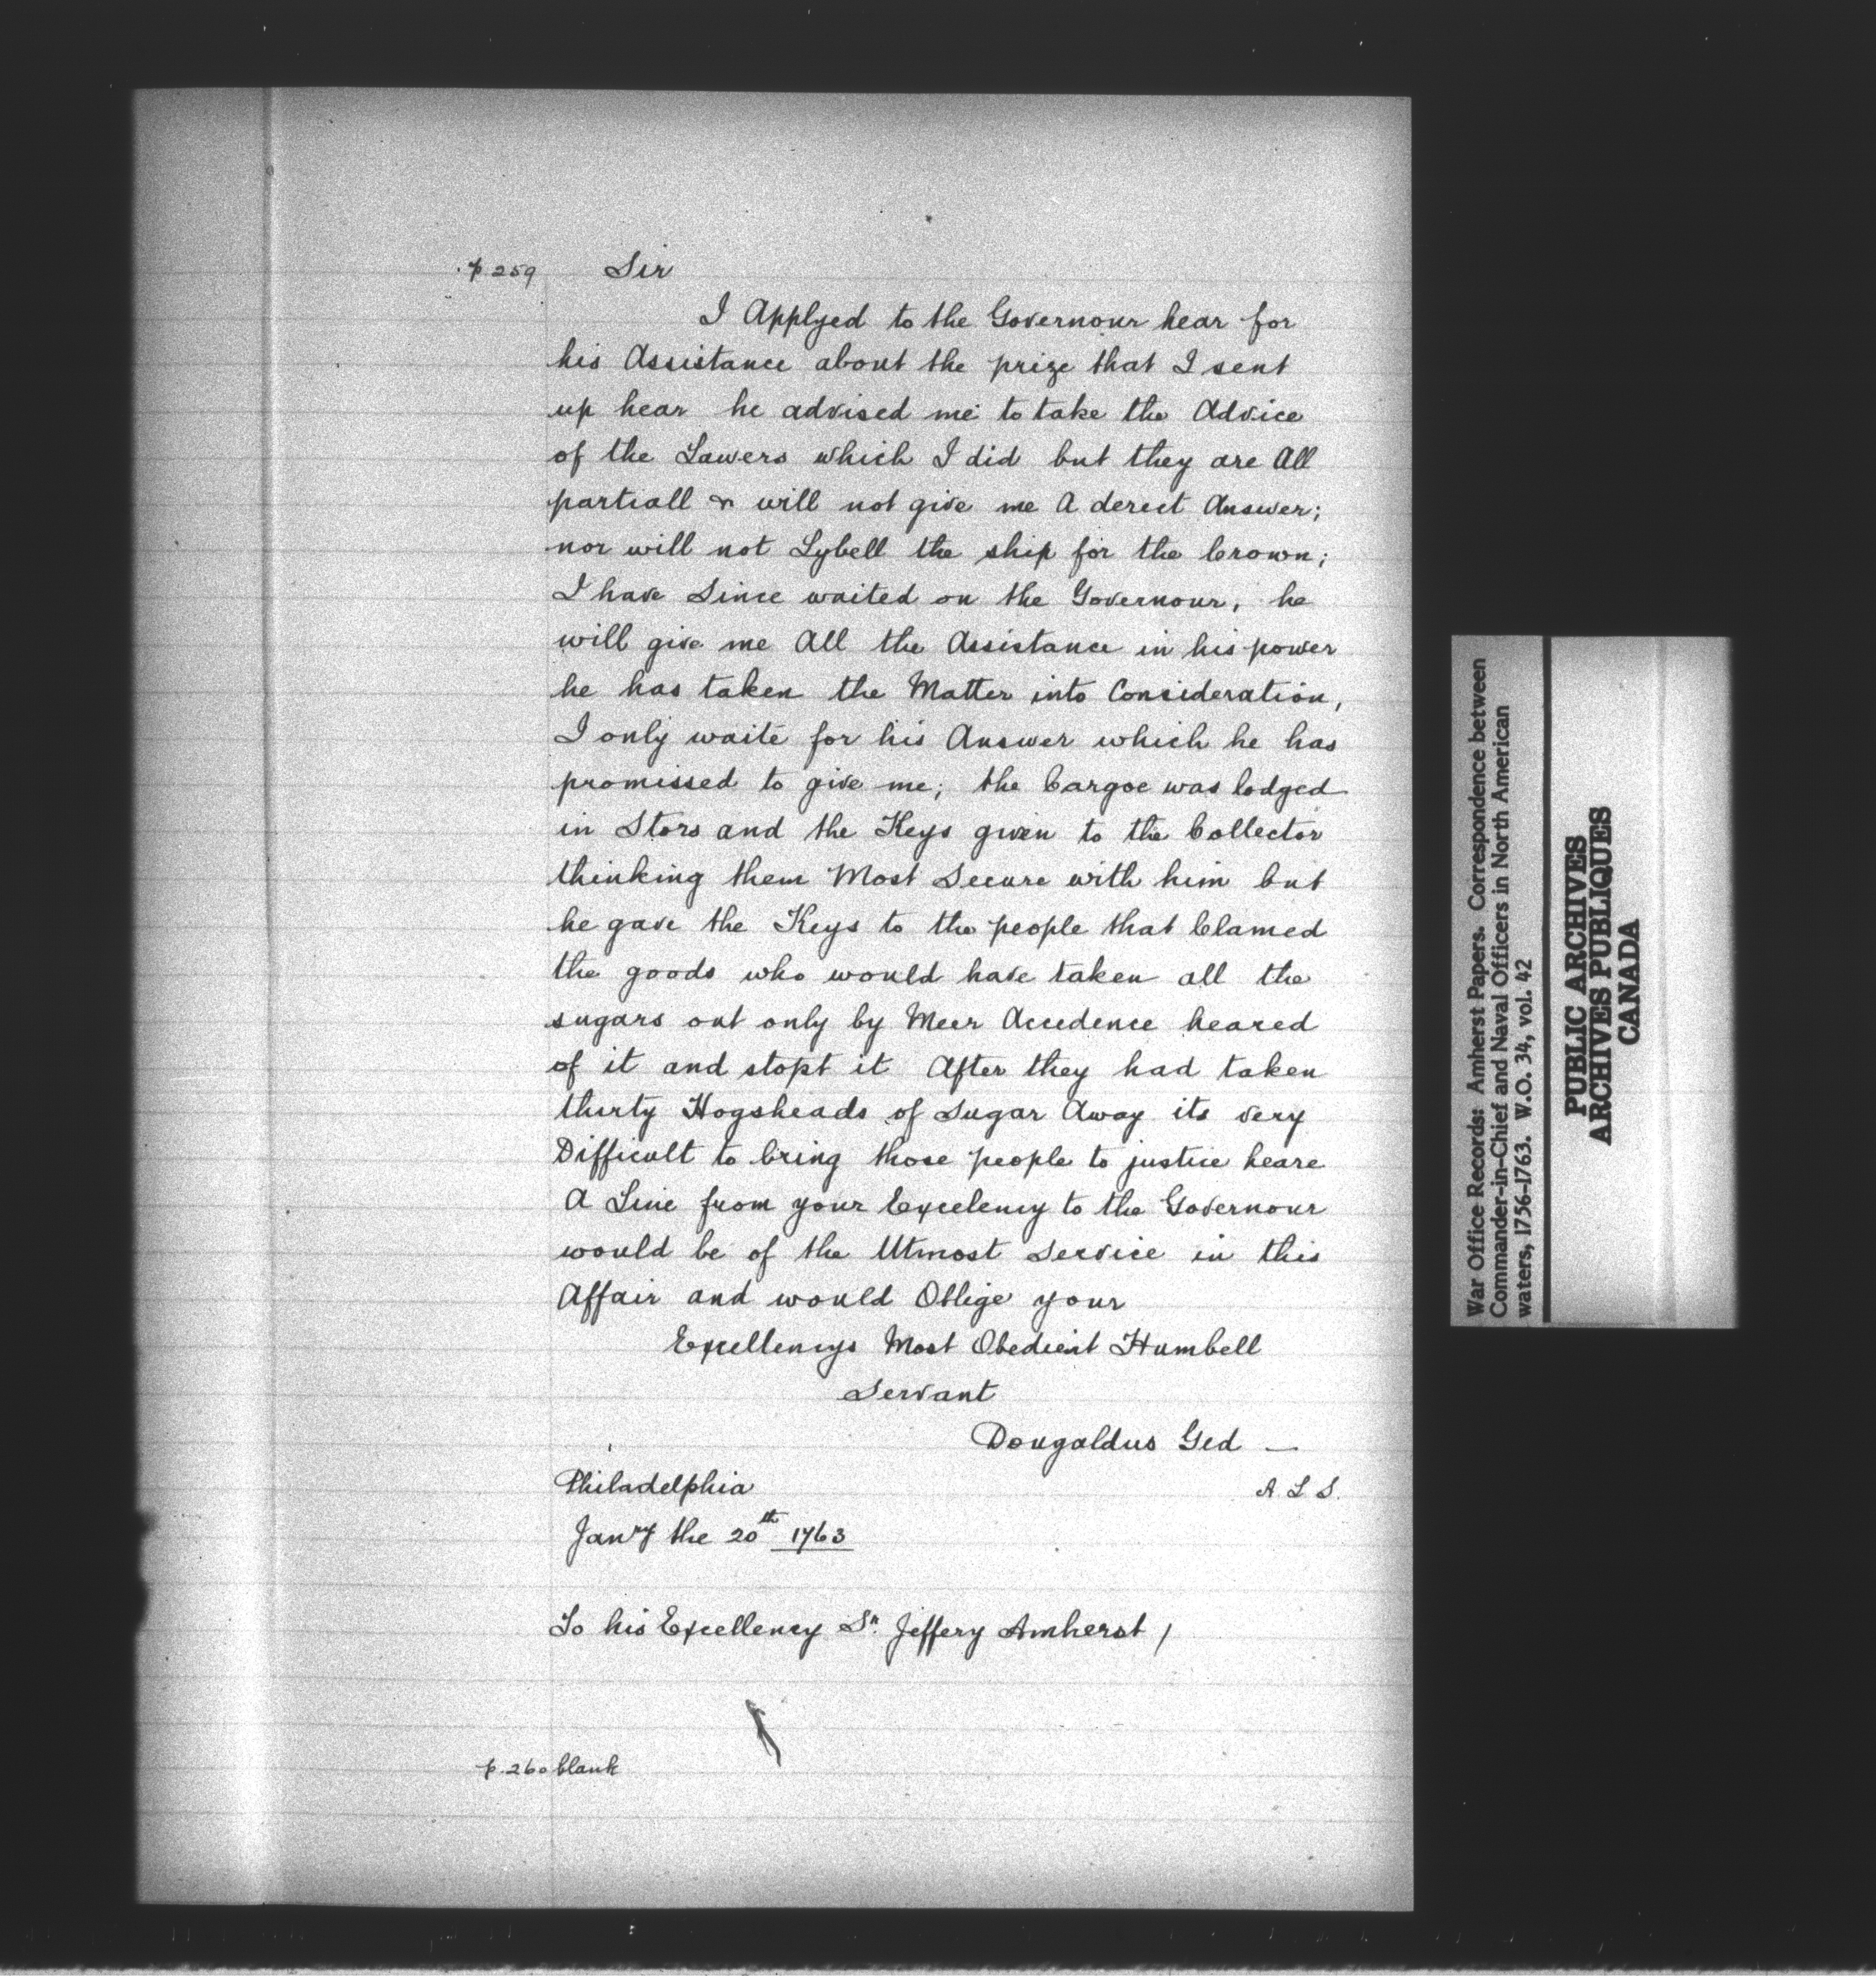 p. 259 Sir
I Applyed to the Governour hear for
his Assistance about the prize that I sent
up hear he advised me to take the Advice
of the Lawers which I did but they are All
partiall & will not give me A derect Answer;
nor will not Lybell the ship for the Crown;
I have Since waited on the Governour, he
will give me All the Assistance in his power
he has taken the Matter into Consideration,
I only waite for his Answer which he has
promissed to give me; the Cargoe was lodged
in Stors and the Keys given to the Collector
thinking them Most Secure with him but
he gave the Keys to the people that Clamed
the goods who would have taken all the
sugars out only by Meer Accedence heared
of it and stopt it After they had taken
thirty Hogsheads of Sugar Away its very
Difficult to bring those people to justice heare
A Line from your Excelency to the Governour
would be of the Utmost Service in this
Affair and would Oblige your
Excellencys Most Obedient Humbell
Servant
Dougaldus Ged —
A. L. S.
Philadelphia
Janry the 20th 1763
To his Excellency Sr. Jeffery Amherst /
p. 260 blank
War Office Records: Amherst Papers. Correspondence between
Commander-in-Chief and Naval Officers in North American
waters, 1756-1763. W.O. 34, vol. 42
PUBLIC ARCHIVES
ARCHIVES PUBLIQUES
CANADA